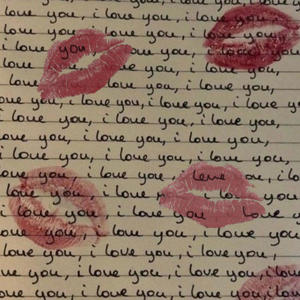 love you, i love you, i love you,
love you, i love you, i love
i love you, i love you, i love you,
i love you love you, i love you
love you, love you, i love you,
love love you, i love you,
love you, i love you, i love you, i love you
love you, i love you, i love you,
i love you, i love you, i love you,
i love you, i love you, i love
love you, i love you, i love you,
love you, i love you, love you,
love you, i love love you,
love you, i love you love you
love you, i love you, i love you,
love you, i love you, i love you,
love you, i love you, i love you, i love
love you, i love you, i love you